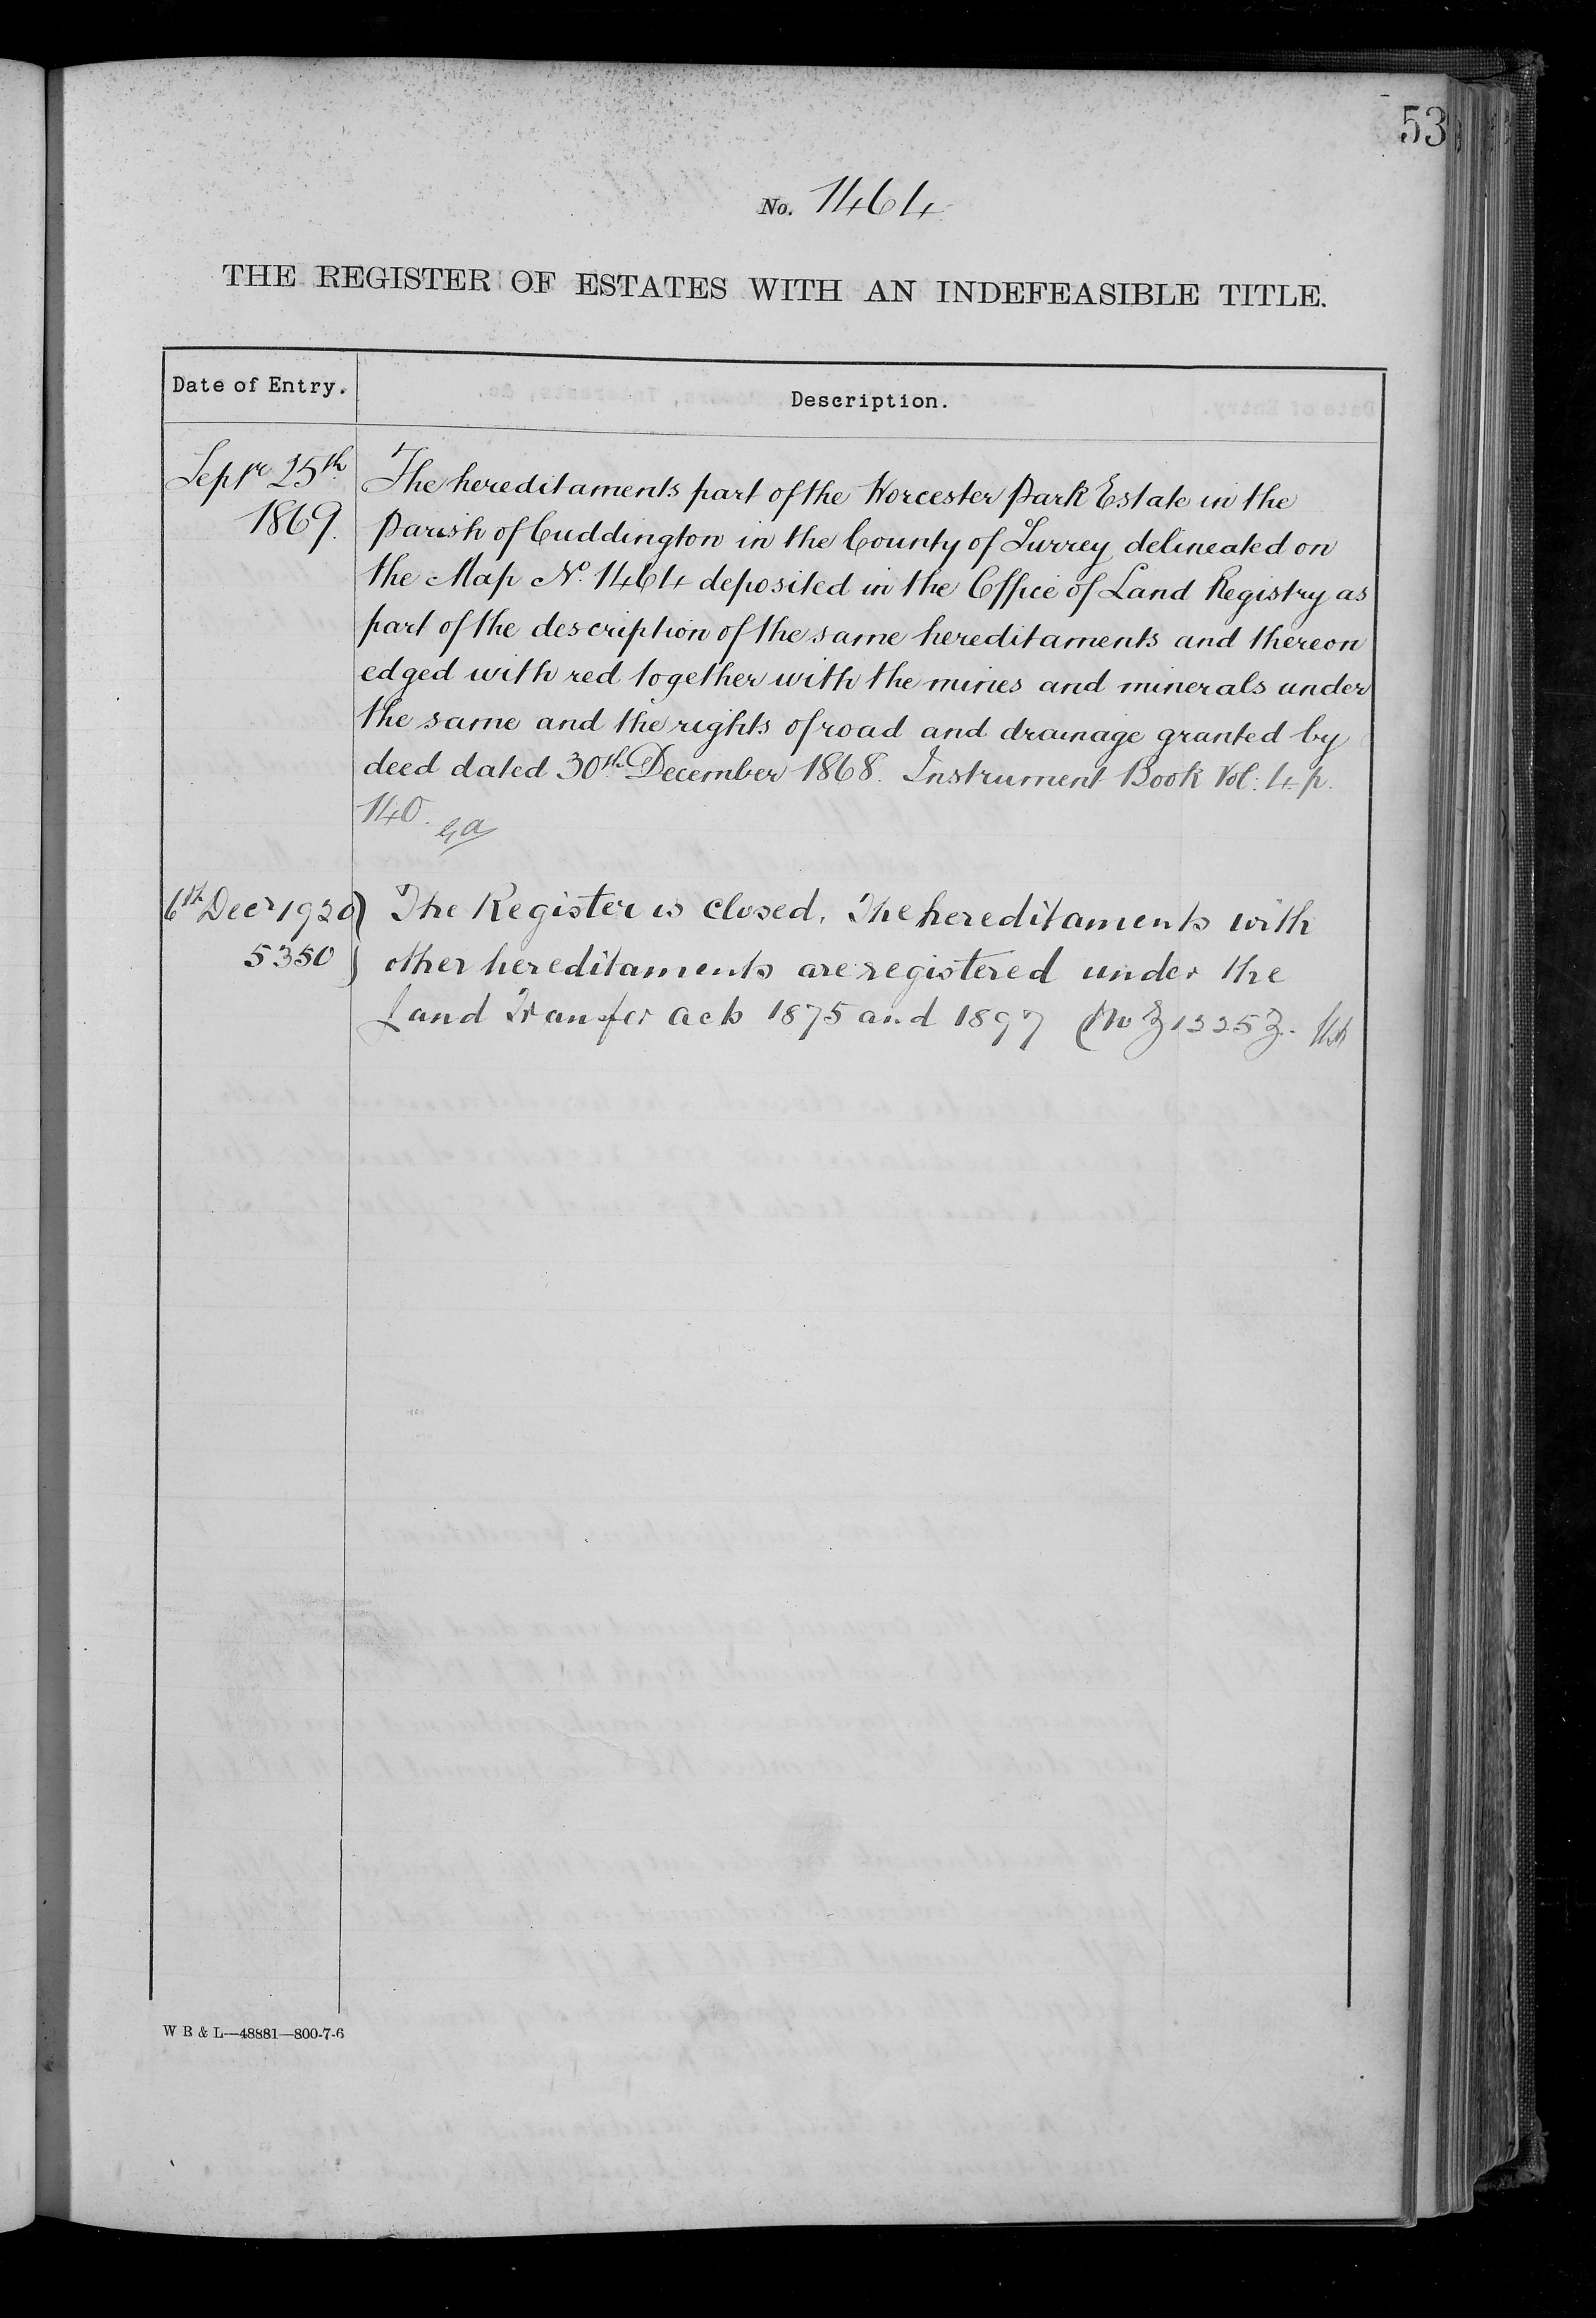 53
No. 1464
THE REGISTER OF ESTATES WITH AN INDEFEASIBLE TITLE.
Date of Entry.
Description.
Septr 25th
1869.
The hereditaments part of the Worcester Park Estate in the
Parish of Cuddington in the County of Surrey delineated on
the Map No. 1464 deposited in the Office of Land Registry as
part of the description of the same hereditaments and thereon
edged with red together with the mines and minerals under
the same and the rights of road and drainage granted by
deed dated 30th December 1868. Instrument Book Vol: 4 p.
140.
6th Decr 1920
5350
The Register is closed. The hereditaments with
other hereditaments are registered under the
Land Transfer Acts 1875 and 1897
W B & L—48881—800-7-6